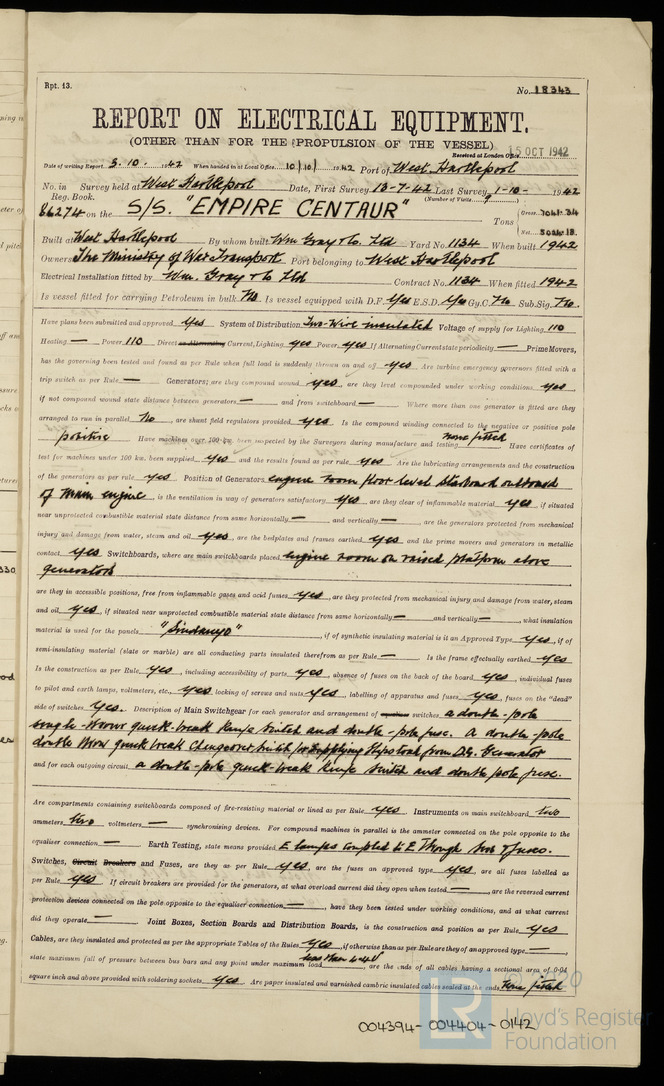 Rpt. 13.
No. 18343
REPORT ON ELECTRICAL EQUIPMENT.
(OTHER THAN FOR THE PROPULSION OF THE VESSEL)
Received at London Office 15 OCT 1942
Date of writing Report 3.10. 1942 When handed in at Local Office 10/10/ 1942 Port of West Hartlepool
No. in Survey held at West Hartlepool Date, First Survey 13-7-42 Last Survey 1-10- 1942
Reg. Book. (Number of Visits 9)
86274 on the S/S. "EMPIRE CENTAUR" Tons Gross 7041.34
Net 5024.18
Built at West Hartlepool By whom built Wm Gray & Co. Ltd Yard No. 1134 When built 1942
Owners The Ministry of War Transport Port belonging to West Hartlepool
Electrical Installation fitted by Wm. Gray & Co Ltd Contract No. 1134 When fitted 1942
Is vessel fitted for carrying Petroleum in bulk No Is vessel equipped with D.F. Yes E.S.D. Yes Gy.C. No Sub.Sig. No.
Have plans been submitted and approved Yes System of Distribution Two-Wire insulated Voltage of supply for Lighting 110
Heating — Power 110 Direct or Alternating Current, Lighting yes Power yes If Alternating Current state periodicity — Prime Movers,
has the governing been tested and found as per Rule when full load is suddenly thrown on and off yes Are turbine emergency governors fitted with a
trip switch as per Rule — Generators, are they compound wound yes, are they level compounded under working conditions yes,
if not compound wound state distance between generators — and from switchboard — Where more than one generator is fitted are they
arranged to run in parallel No, are shunt field regulators provided yes Is the compound winding connected to the negative or positive pole
positive Have machines over 100 kw. been inspected by the Surveyors during manufacture and testing none fitted Have certificates of
test for machines under 100 kw. been supplied yes and the results found as per rule yes Are the lubricating arrangements and the construction
of the generators as per rule yes Position of Generators engine room floor level starboard outboard
of main engine, is the ventilation in way of generators satisfactory yes are they clear of inflammable material yes if situated
near unprotected combustible material state distance from same horizontally — and vertically —, are the generators protected from mechanical
injury and damage from water, steam and oil yes, are the bedplates and frames earthed yes and the prime movers and generators in metallic
contact yes Switchboards, where are main switchboards placed engine room on raised platform above
generators
are they in accessible positions, free from inflammable gases and acid fumes yes, are they protected from mechanical injury and damage from water, steam
and oil yes, if situated near unprotected combustible material state distance from same horizontally — and vertically —, what insulation
material is used for the panels "Sindanyo", if of synthetic insulating material is it an Approved Type yes, if of
semi-insulating material (slate or marble) are all conducting parts insulated therefrom as per Rule — Is the frame effectually earthed yes
Is the construction as per Rule yes, including accessibility of parts yes, absence of fuses on the back of the board yes, individual fuses
to pilot and earth lamps, voltmeters, etc., yes locking of screws and nuts yes, labelling of apparatus and fuses yes, fuses on the "dead"
side of switches yes. Description of Main Switchgear for each generator and arrangement of equaliser switches a double-pole
single-throw quick-break knife switch and double-pole fuse. A double-pole
double throw quick break changeover switch for supplying
and for each outgoing circuit a double-pole quick-break knife switch and double pole fuse.
Are compartments containing switchboards composed of fire-resisting material or lined as per Rule yes. Instruments on main switchboard two
ammeters two voltmeters — synchronising devices. For compound machines in parallel is the ammeter connected on the pole opposite to the
equaliser connection — Earth Testing, state means provided E lamps coupled to E through
Switches, Circuit Breakers and Fuses, are they as per Rule yes, are the fuses an approved type yes, are all fuses labelled as
per Rule yes If circuit breakers are provided for the generators, at what overload current did they open when tested —, are the reversed current
protection devices connected on the pole opposite to the equaliser connection —, have they been tested under working conditions, and at what current
did they operate — Joint Boxes, Section Boards and Distribution Boards, is the construction and position as per Rule yes
Cables, are they insulated and protected as per the appropriate Tables of the Rules yes, if otherwise than as per Rule are they of an approved type —,
state maximum fall of pressure between bus bars and any point under maximum load less than 4.4V, are the ends of all cables having a sectional area of 0.04
square inch and above provided with soldering sockets yes Are paper insulated and varnished cambric insulated cables sealed at the ends none fitted
© 2020
LR
Lloyd's Register
Foundation
004394-004404-0142